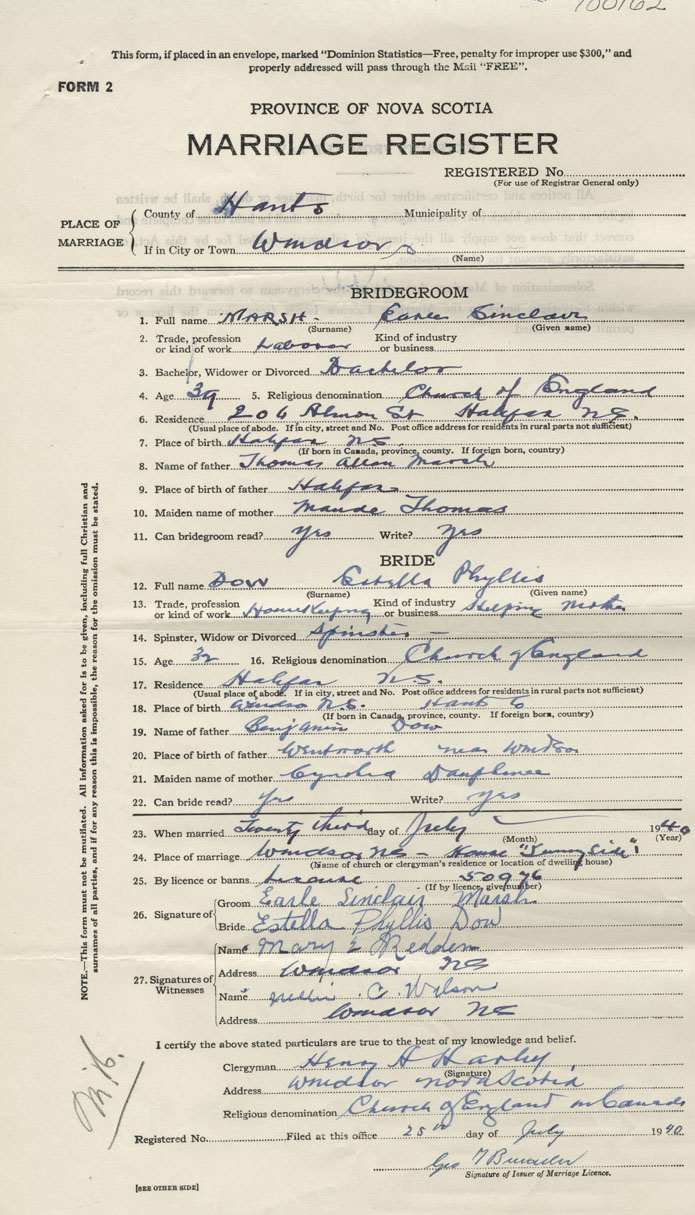 700162
This form, if placed in an envelope, marked "Dominion Statistics—Free, penalty for improper use $300," and
properly addressed will pass through the Mail "FREE".
FORM 2
PROVINCE OF NOVA SCOTIA
MARRIAGE REGISTER
REGISTERED No.
(For use of Registrar General only)
PLACE OF MARRIAGE
County of Hants Municipality of
If in City or Town Windsor
(Name)
BRIDEGROOM
1. Full name MARSH - Earle Sinclair
(Surname) (Given name)
2. Trade, profession or kind of work Laborer Kind of industry or business
3. Bachelor, Widower or Divorced Bachelor
4. Age 39 5. Religious denomination Church of England
6. Residence 206 Almon St Halifax N.S.
(Usual place of abode. If in city, street and No. Post office address for residents in rural parts not sufficient)
7. Place of birth Halifax NS.
(If born in Canada, province, county. If foreign born, country)
8. Name of father Thomas Allan Marsh
9. Place of birth of father Halifax
10. Maiden name of mother Maude Thomas
11. Can bridegroom read? yes Write? yes
BRIDE
12. Full name Dow Estella Phyllis
(Surname) (Given name)
13. Trade, profession or kind of work HomeKeeping Kind of industry or business Helping Mother
14. Spinster, Widow or Divorced Spinster —
15. Age 32 16. Religious denomination Church of England
17. Residence Halifax N.S.
(Usual place of abode. If in city, street and No. Post office address for residents in rural parts not sufficient)
18. Place of birth Windsor N.S. Hants Co
(If born in Canada, province, county. If foreign born, country)
19. Name of father Benjamin Dow
20. Place of birth of father Wentworth near Windsor
21. Maiden name of mother Dauphinee
22. Can bride read? yes Write? yes
23. When married Twenty third day of July 1940
(Month) (Year)
24. Place of marriage Windsor NS - House "Sunny Side"
(Name of church or clergyman's residence or location of dwelling house)
25. By licence or banns License 50976
(If by licence, give number)
26. Signature of
Groom Earle Sinclair Marsh
Bride Estella Phyllis Dow
27. Signatures of Witnesses
Name Mary E Redden
Address Windsor NS
Name Nellie C. Wilson
Address Windsor NS
I certify the above stated particulars are true to the best of my knowledge and belief.
Clergyman Henry A Harley
(Signature)
Address Windsor Nova Scotia
Religious denomination Church of England in Canada
Registered No. Filed at this office 25th day of July 1940
Geo
Signature of Issuer of Marriage Licence.
[SEE OTHER SIDE]
NOTE.—This form must not be mutilated. All information asked for is to be given, including full Christian and
surnames of all parties, and if for any reason this is impossible, the reason for the omission must be stated.